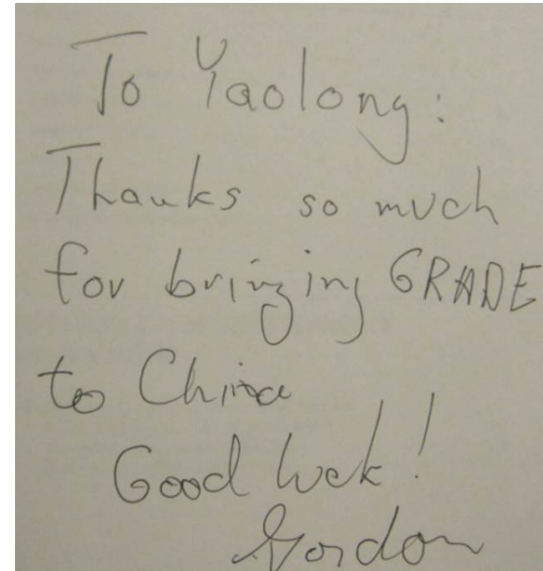 To Yaolong:
Thanks so much
for bringing GRADE
to China
Good luck!
Gordon